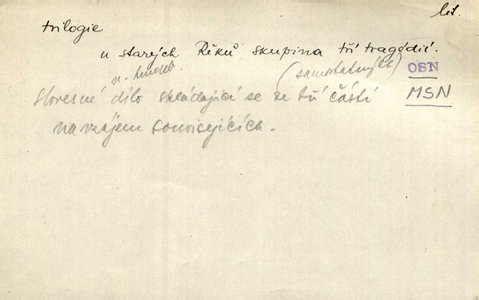 lit.
trilogie
u starých Řeků skupina tří tragédií.
n. hudeb. (samostatných) OSN
slovesné dílo skládající se ze tří částí MSN
navzájem souvisejících.